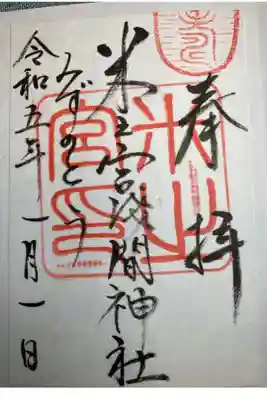 奉拝
米之宮浅間神社
みずのとう
令和五年 一月一日
米之
宮印